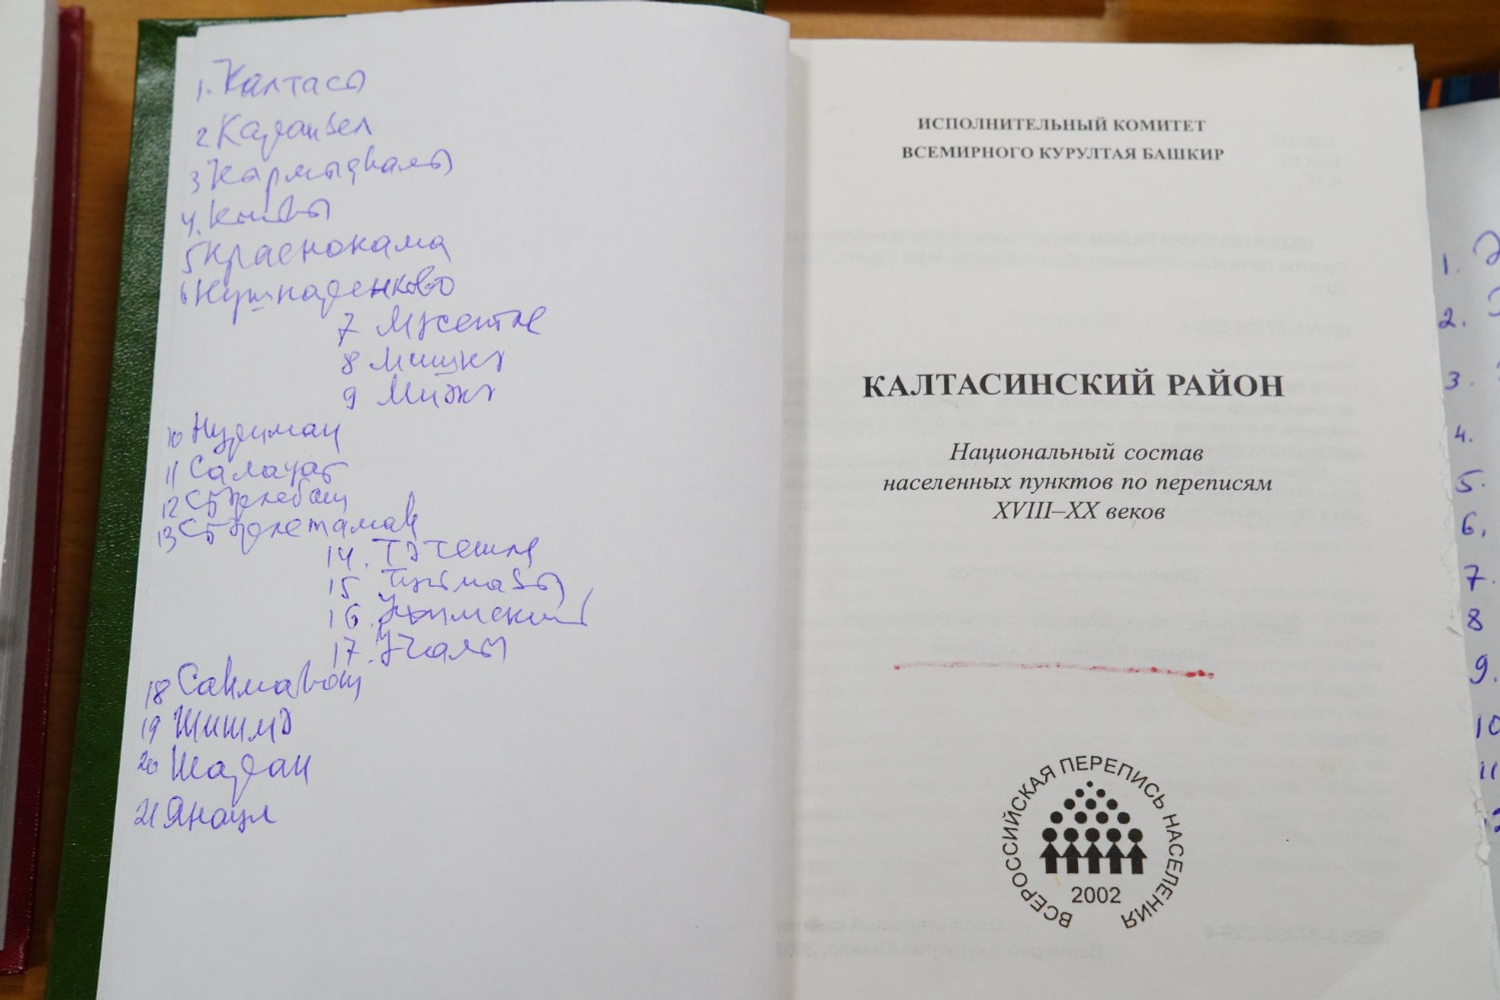 1. Калтасы
2 Караидел
3 Кармаскалы
4. Киги
5 Краснокама
6 Кушнаренково
7 Мәсетле
8 Мишкә
9 Миәкә
10 Нуриман
11 Салауат
12 Стәрлебаш
13 Стәрлетамаҡ
14. Тәтешле
15 Туймазы
16. Уфимский
17. Учалы
18 Саҡмағош
19 Шишмә
20 Шаран
21 Янаул
ИСПОЛНИТЕЛЬНЫЙ КОМИТЕТ
ВСЕМИРНОГО КУРУЛТАЯ БАШКИР
КАЛТАСИНСКИЙ РАЙОН
Национальный состав
населенных пунктов по переписям
XVIII–XX веков
ВСЕРОССИЙСКАЯ ПЕРЕПИСЬ НАСЕЛЕНИЯ
2002
1.
2.
3.
4.
5.
6.
7.
8
9.
10
11
12